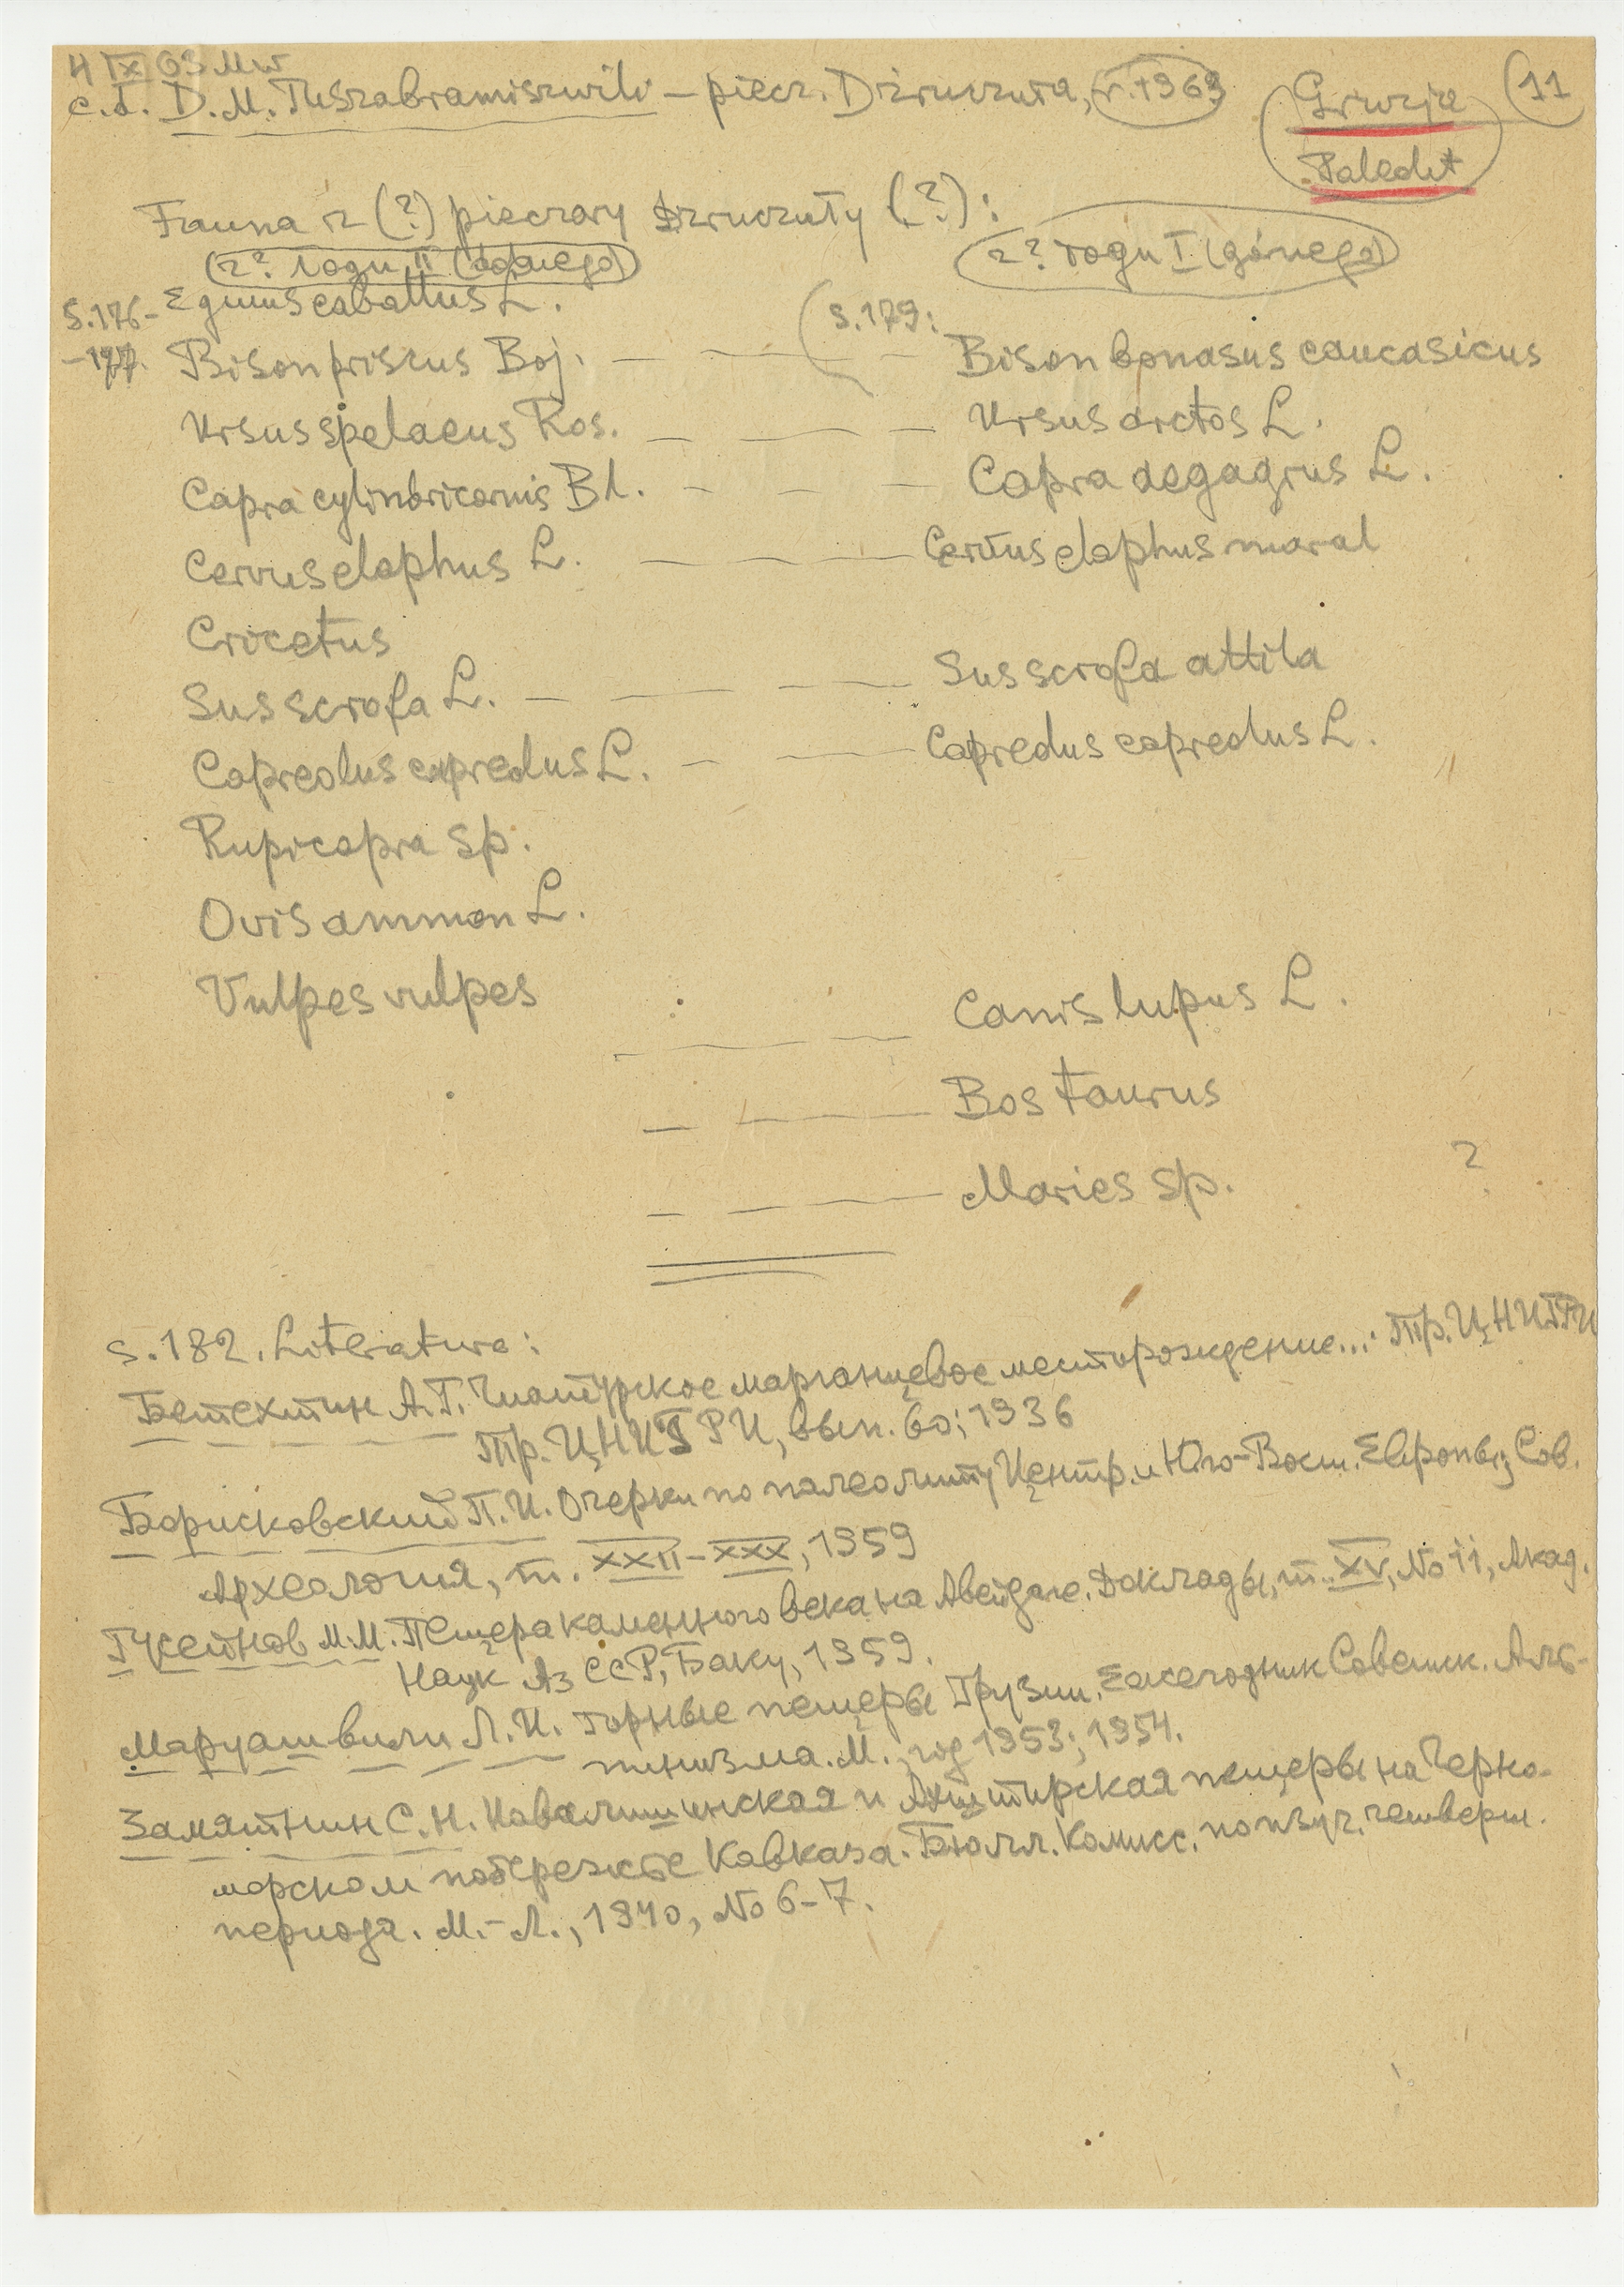 4 IX 69 Mw
c.d. D. M. Tuszabramiszwili – piecz. Dzruczuła, r. 1963
Gruzja
11
Paleolit
Fauna z (?) pieczary Dzruczuły (?):
(z? Łogu II (dolnego)
(z? Łogu I (górnego)
S. 176-
-177.
Equus caballus L.
(S. 179:
Bison priscus Boj. — — — Bison bonasus caucasicus
Ursus spelaeus Ros. — — — Ursus arctos L.
Capra cylindricornis Bl. — — — Capra aegagrus L.
Cervus elaphus L. — — — Cervus elaphus maral
Cricetus
Sus scrofa L. — — — Sus scrofa attila
Capreolus capreolus L. — — Capreolus capreolus L.
Rupicapra sp.
Ovis ammon L.
Vulpes vulpes
— — — Canis lupus L.
— — — Bos taurus
— — — Maries sp. ?
S. 182. Literatura:
Бетехтин А.Г. Чиатурское марганцевое месторождение... Тр. ЦНИГРИ
Тр. ЦНИГРИ, вып. 60; 1936
Борисковский П.И. Очерки по палеолиту Центр. и Юго-Вост. Европы, Сов.
Археология, т. XXII–XXX, 1959
Гусейнов М.М. Пещера каменного века на Авейдаге. Доклады, т. XV, No 11, Акад.
Наук Аз ССР, Баку, 1959.
Маруашвили Л.И. Горные пещеры Грузии. Ежегодник Советск. Аль-
пинизма. М., год 1953; 1954.
Замятнин С.Н. Навалишинская и Ахштырская пещеры на Черно-
морском побережье Кавказа. Бюлл. Комисс. по изуч. четверт.
периода. М.-Л., 1940, No 6-7.